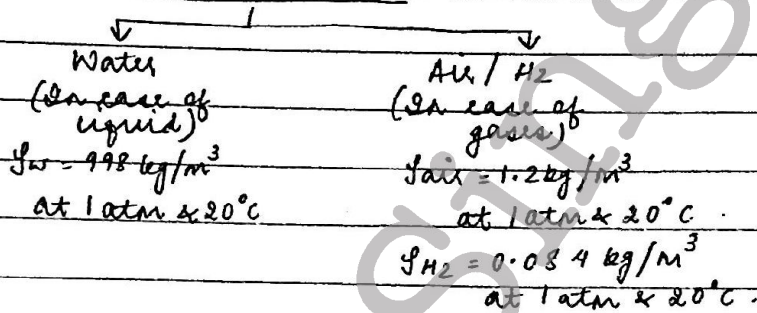 Water
(In case of
liquid)
ρw = 998 kg/m³
at 1 atm & 20°C
Air / H2
(In case of
gases)
ρair = 1.2 kg/m³
at 1 atm & 20°C.
ρH2 = 0.084 kg/m³
at 1 atm & 20°C.
Sing